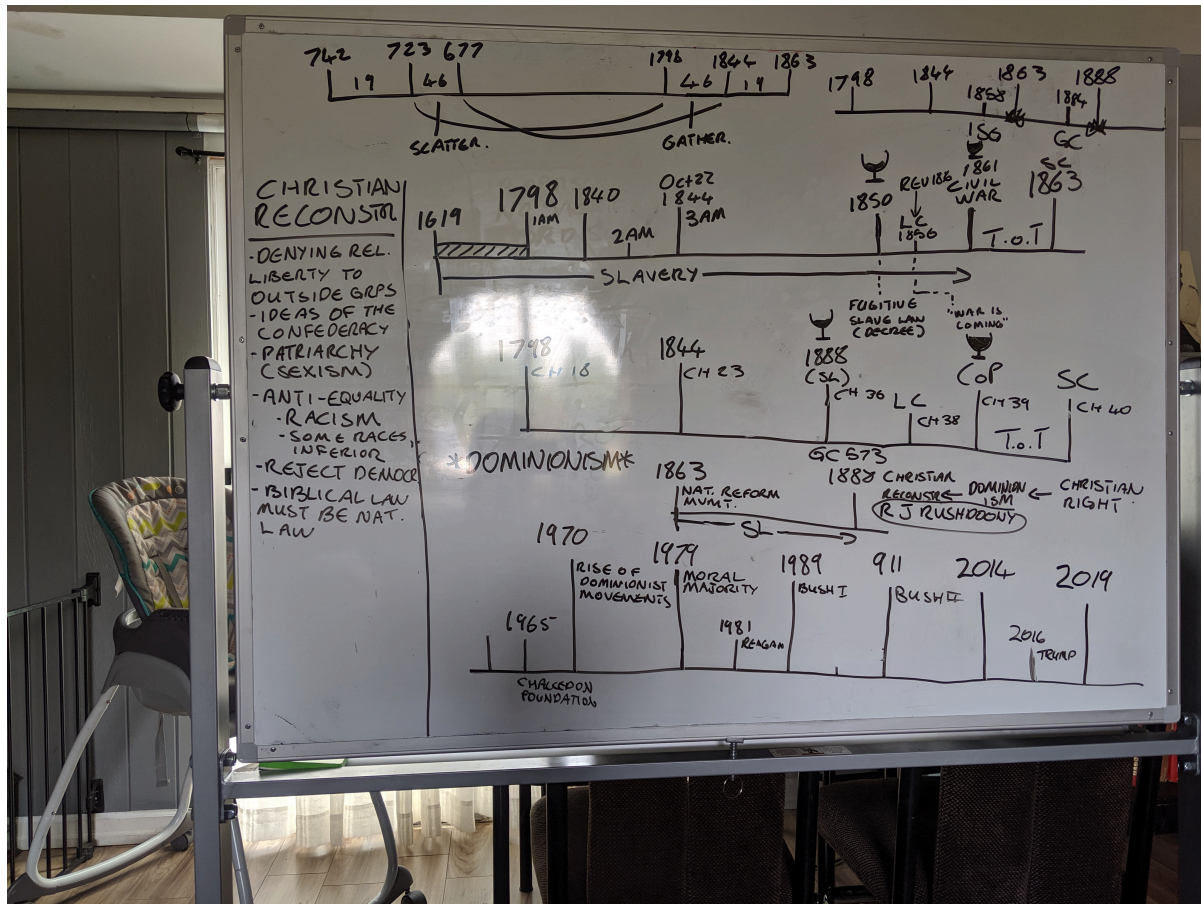 742 723 677 1798 1844 1863
19 46 46 19
SCATTER. GATHER.
1798 1844 1858 1863 1884 1888
1SG GC
CHRISTIAN
RECONSTR
-DENYING REL.
LIBERTY TO
OUTSIDE GRPS
-IDEAS OF THE
CONFEDERACY
-PATRIARCHY
(SEXISM)
-ANTI-EQUALITY
-RACISM
-SOME RACES
INFERIOR
-REJECT DEMOCR
-BIBLICAL LAW
MUST BE NAT.
LAW
1619 1798 1840 Oct 22 1844 1850 REV 186 1861 SC
1AM 2AM 3AM LC 1856 CIVIL WAR 1863
T.O.T
SLAVERY
FUGITIVE
SLAVE LAW
(DECREE)
"WAR IS
COMING"
1798 1844 1888 (SL) LC COP SC
CH 18 CH 23 CH 36 CH 38 CH 39 CH 40
T.O.T
GC 573
*DOMINIONISM*
1863 1888
NAT. REFORM
MVMT.
SL
CHRISTIAN
RECONSTR
DOMINION
ISM
CHRISTIAN
RIGHT
R J RUSHDOONY
1965 1970 1979 1981 1989 911 2014 2016 2019
RISE OF
DOMINIONIST
MOVEMENTS
MORAL
MAJORITY
REAGAN
BUSH I
BUSH II
TRUMP
CHALCEDON
FOUNDATION